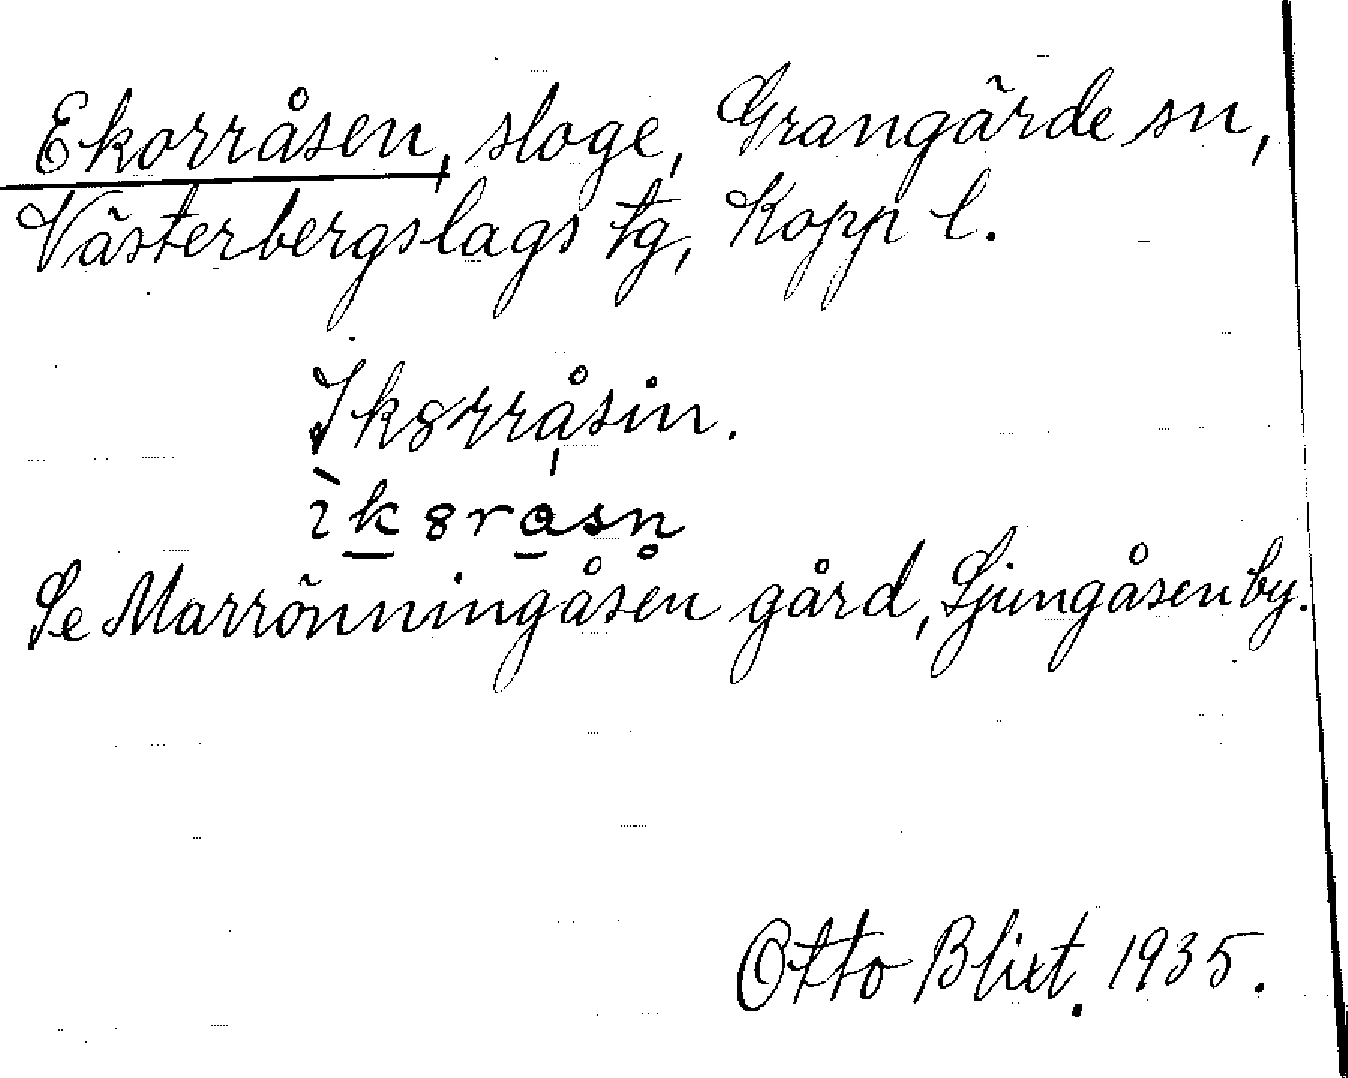 Ekorråsen, sloge, Grangärde sn,
Västerbergslags tg, Kopp l.
Ik8rråsin.
ìk8rasn̥
Se Marrönningåsen gård, Ljungåsen by.
Otto Blixt. 1935.